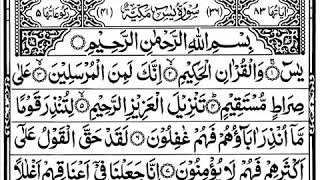 اٰیَاتُهَا ٨٣ (٣٦) سُوْرَةُ یٰسٓ مَكِّیَّةٌ (٤١) رُكُوْعَاتُهَا ٥
بِسْمِ اللّٰهِ الرَّحْمٰنِ الرَّحِیْمِ
یٰسٓ ۚ﴿١﴾ وَ الْقُرْاٰنِ الْحَكِیْمِ ۙ﴿٢﴾ اِنَّكَ لَمِنَ الْمُرْسَلِیْنَ ۙ﴿٣﴾ عَلٰی
صِرَاطٍ مُّسْتَقِیْمٍ ؕ﴿٤﴾ تَنْزِیْلَ الْعَزِیْزِ الرَّحِیْمِ ۙ﴿٥﴾ لِتُنْذِرَ قَوْمًا
مَّاۤ اُنْذِرَ اٰبَآؤُهُمْ فَهُمْ غٰفِلُوْنَ ﴿٦﴾ لَقَدْ حَقَّ الْقَوْلُ عَلٰۤی
اَكْثَرِهِمْ فَهُمْ لَا یُؤْمِنُوْنَ ﴿٧﴾ اِنَّا جَعَلْنَا فِیْۤ اَعْنَاقِهِمْ اَغْلٰلًا